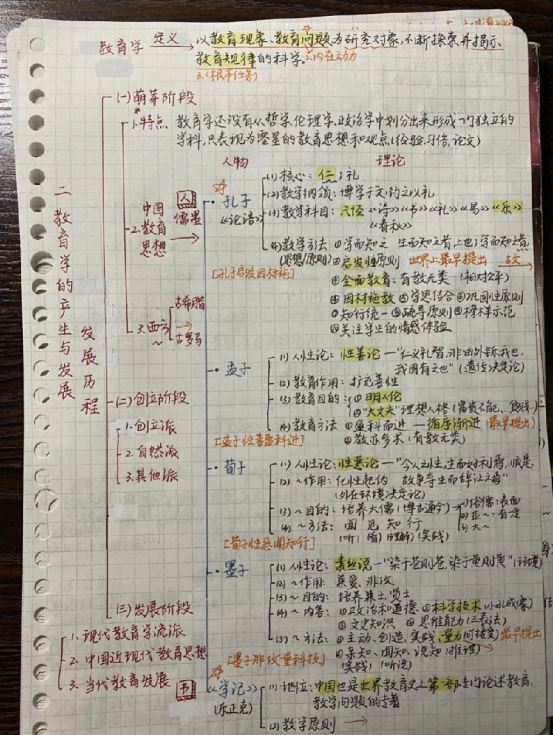 教育学 定义 以教育现象、教育问题为研究对象,不断探索并揭示
教育规律的科学 去内在动力
3.(根本任务)
二、教育学的产生与发展
发展历程
(一)萌芽阶段
1.特点 教育学还没有从哲学、伦理学、政治学中划分出来形成一门独立的
学科,只表现为零星的教育思想和观点(经验、习俗、论文)
人物 理论
中国
2.教育
思想
人
儒墨
孔子
《论语》
(1)核心:仁、礼
(2)教学纲领:博学于文,约之以礼
(3)教学科目:六经《诗》《书》《礼》《易》《乐》
《春秋》
(4)教学方法 ①学而知之 生而知之者,上也;学而知之
(思想/原则) ②启发性原则 世界上最早提出
③全面教育:有教无类
④因材施教 ⑤学思结合 ⑥巩固性原则
⑦知行统一 榜样示范
关注学生的情感体验
3.西方
~
古希腊
古罗马
孟子
(1)人性论:性善论—“仁义礼智,非由外铄我也,
我固有之也”(遗传决定论)
(2)教育作用:扩充善性
(3)教育目的:①明人伦
②“大丈夫”理想人格(富贵不能
(4)教育方法 ①盈科而进—循序渐进(最早提出)
②教亦多术
[孟子性善盈科进]
(二)创立阶段
1.创立派
2.自然派
3.其他派
荀子
(1)人性论:性恶论—“今人之性,生而好利焉,顺是
故争夺生而辞让
(2)~作用:化性起伪
(外在环境决定论)
(3)~目的:培养大儒
(4)~方法:闻 见 知 行
[荀子性恶闻知行]
墨子
(1)人性论:素丝说—“染于苍则苍,染于黄则黄”
(2)~作用:兼爱、非攻
(3)~目的:培养兼士/贤士
(4)~内容:①政治和道德 ②科学技术(小孔成像)
③文史知识 ④思维能力(三表法)
(5)~方法:①主动、创造、实践、量力 最早提出
②亲知、闻知、说知(推理)
[墨子非攻量科技]
(三)发展阶段
1.现代教育学流派
2.中国近现代教育思想
3.当代教育发展
书
《学记》
(乐正克)
(1)地位:中国也是世界教育史上第一部专门论述教育、
教学问题的专著
(2)教学原则